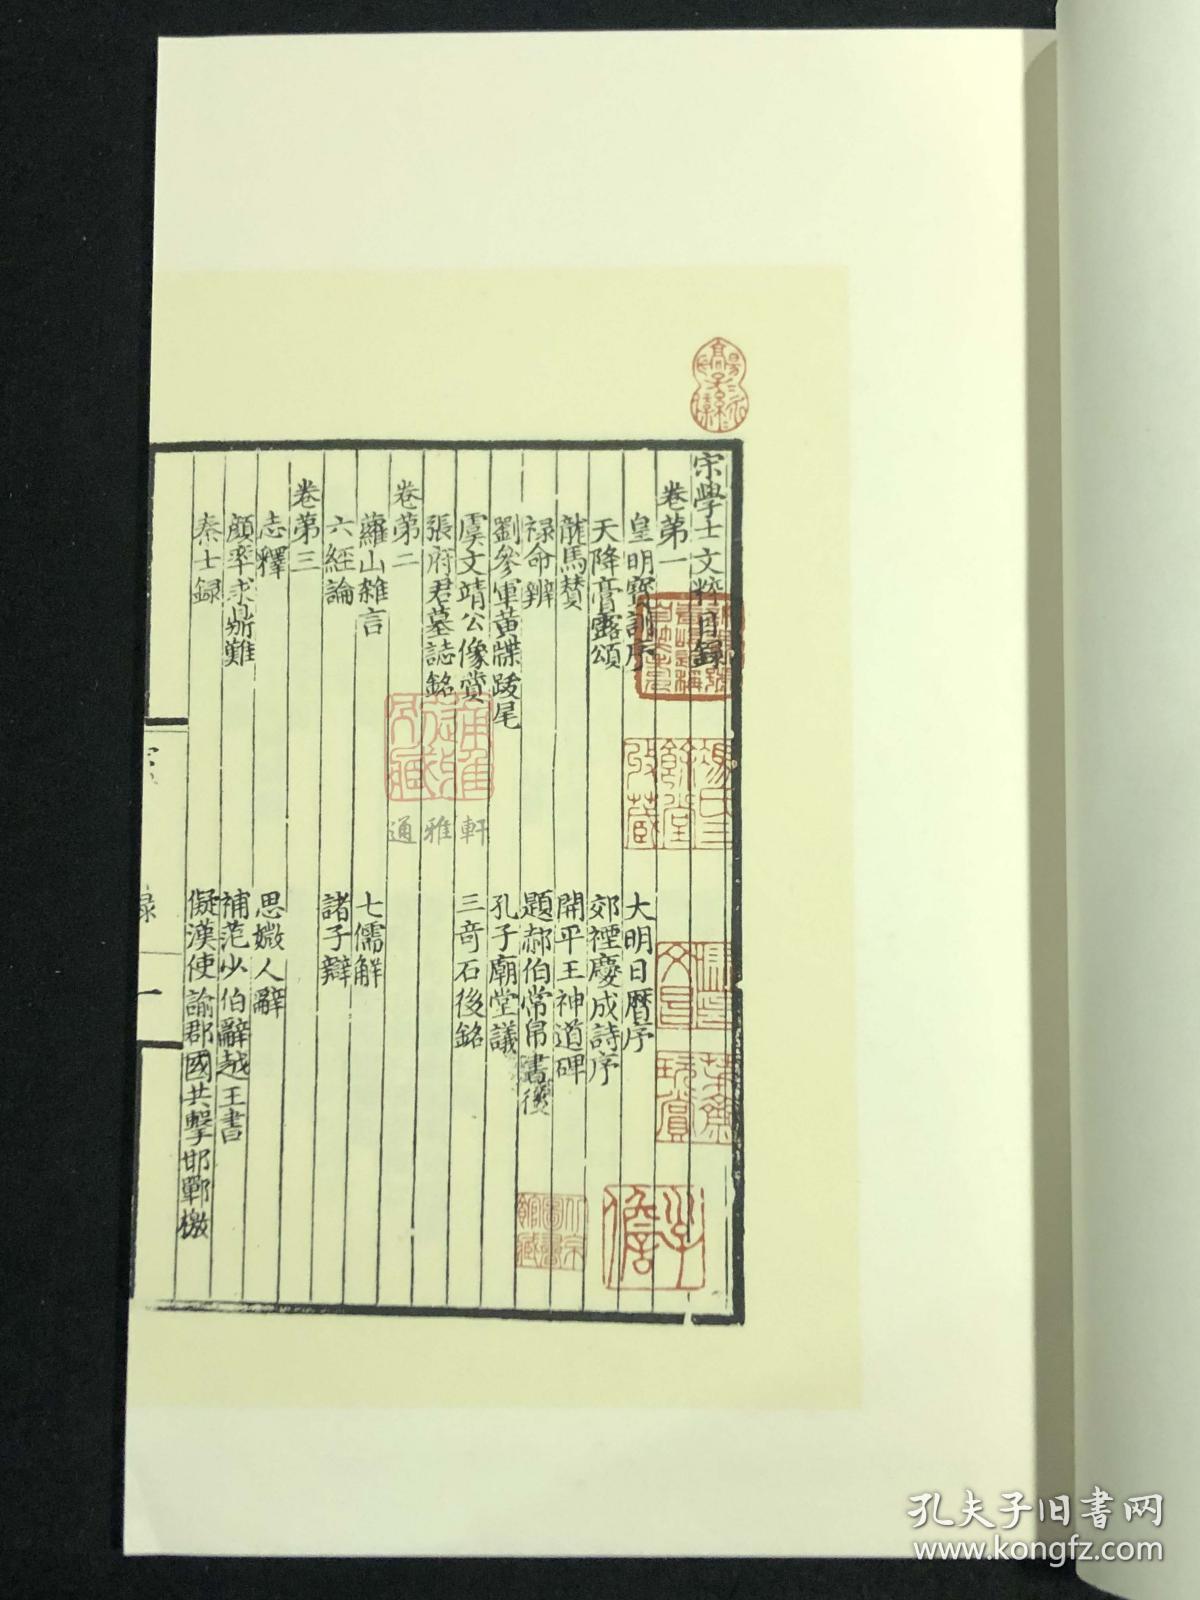 宋學士文粹目録
卷第一
皇明寶訓序
大明日曆序
天降膏露頌
郊禋慶成詩序
龍馬賛
開平王神道碑
禄命辨
題郝伯常帛書後
劉參軍黄牒跋尾
孔子廟堂議
虞文靖公像賛
三奇石後銘
張府君墓誌銘
卷第二
蘿山雜言
七儒解
六經論
諸子辯
卷第三
志釋
思媺人辭
顔率求鼎難
補范少伯辭越王書
秦士録
儗漢使諭郡國共擊邯鄲檄
録
一
馮氏三
餘堂
收藏
通雅軒
孔夫子旧书网
www.kongfz.com